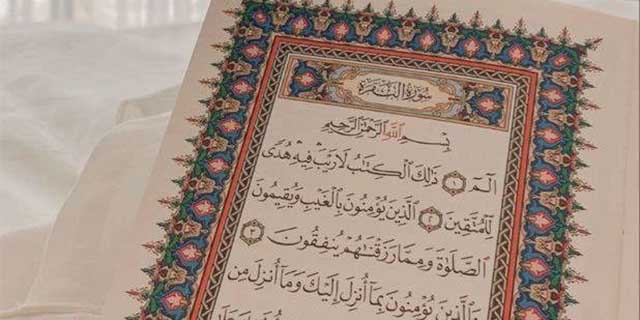 سُورَةُ الْبَقَرَةِ
بِسْمِ اللَّهِ الرَّحْمَٰنِ الرَّحِيمِ
الٓمٓ ۝١ ذَٰلِكَ الْكِتَٰبُ لَا رَيْبَ فِيهِ هُدًى
لِلْمُتَّقِينَ ۝٢ الَّذِينَ يُؤْمِنُونَ بِالْغَيْبِ وَيُقِيمُونَ
الصَّلَوٰةَ وَمِمَّا رَزَقْنَٰهُمْ يُنفِقُونَ ۝٣
وَالَّذِينَ يُؤْمِنُونَ بِمَا أُنزِلَ إِلَيْكَ وَمَا أُنزِلَ مِن